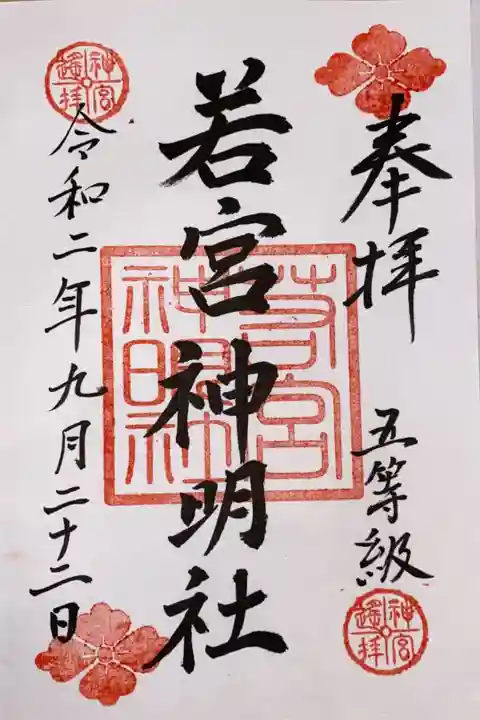 奉拝
五等級
神宮
遙拝
若宮神明社
若宮
神明社
神宮
遙拝
令和二年九月二十二日